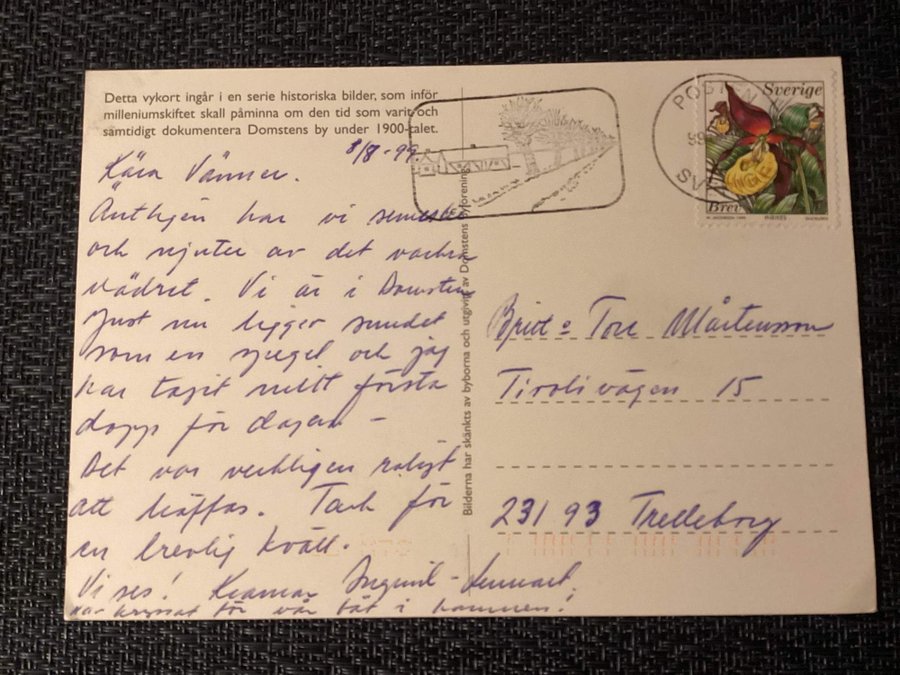 Detta vykort ingår i en serie historiska bilder, som inför
milleniumskiftet skall påminna om den tid som varit och
samtidigt dokumentera Domstens by under 1900-talet.
8/8-99.
Kära Vänner.
Äntligen har vi semester
och njuter av det vackra
vädret. Vi är i Domsten
Just nu ligger sundet
som en spegel och jag
har tagit mitt första
dopp för dagen –
Det var verkligen roligt
att träffas. Tack för
en trevlig kväll.
Vi ses! Kramar Ingmil - Lennart.
har kryssat för vår båt i hamnen!
Bilderna har skänkts av byborna och utgivits av Domstens byförening
POSTEN
Sverige
Brev
Britt o Tore Mårtensson
Tirolivägen 15
231 93 Trelleborg